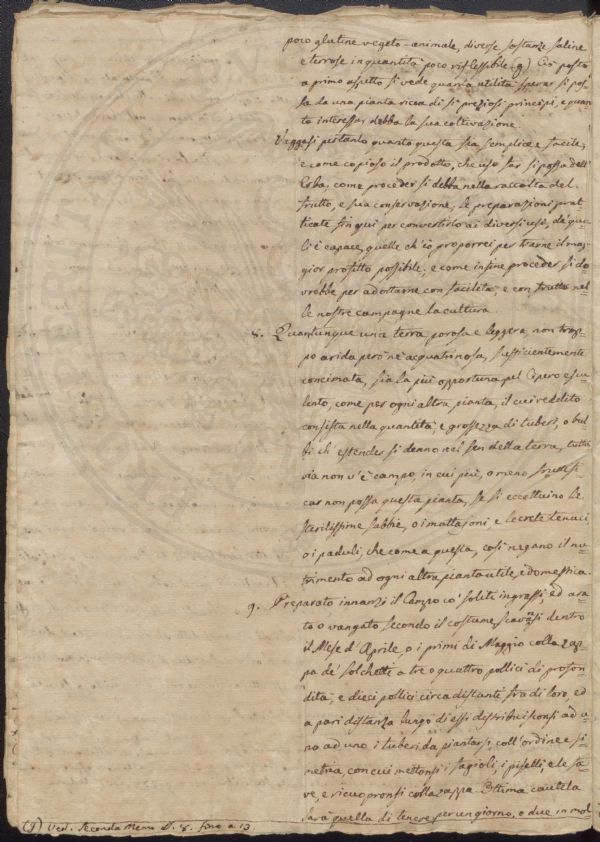 poco glutine vegeto-animale, diverse sostanze saline
e terrose in quantità poco riflessibile (g) Ciò posto
a primo aspetto si vede quanta utilità sperar si pos-
sa da una pianta ricca di sì preziosi principi, e quan-
to interessar debba la sua coltivazione.
Veggasi pertanto quanto questa sia semplice e facile,
e come copioso il prodotto, che uso far si possa dell'
Erba, come proceder si debba nella raccolta del
frutto, e sua conservazione, le preparazioni prat-
ticate fin qui per convertirlo ai diversi usi, de' qua-
li è capace, quelle ch'io proporrei per trarne il mag-
gior profitto possibile, e come infine proceder si do-
vrebbe per adottarne con facilità, e con frutto nel-
le nostre campagne la cultura.
8. Quantunque una terra porosa e leggera, non trop-
po arida però nè acquatrinosa, sufficientemente
concimata, sia la più opportuna pel Cipero escu-
lento, come per ogni altra pianta, il cui reddito
consista nella quantità, e grossezza di tuberi, o bul-
bi ch'estender si denno nel sen della terra, tutta
via non v'è campo, in cui più, o meno fruttifi-
car non possa questa pianta, se si eccettuino le
sterilissime sabbie, o i mattajoni e le crete tenaci
o i paduli, che come a questa, così negano il nu-
trimento ad ogni altra pianta utile, e domestica.
9. Preparato innanzi il Campo co' soliti ingrassi, ed ara-
to o vangato secondo il costume, scavansi dentro
il Mese d'Aprile, o i primi di Maggio colla zap-
pa de' solchetti a tre o quattro pollici di profon-
dità, e dieci pollici circa distanti fra di loro, ed
a pari distanza lungo di essi distribuisconsi ad u-
no ad uno i tuberi da piantarsi coll'ordine e si-
metria, con cui mettonsi i fagioli, i piselli, e le fa-
ve, e ricuopronsi colla zappa. Ottima cautela
sarà quella di tenere per un giorno, o due in mol-
(g) Ved. Seconda Mem. §. 8. fino a 13.